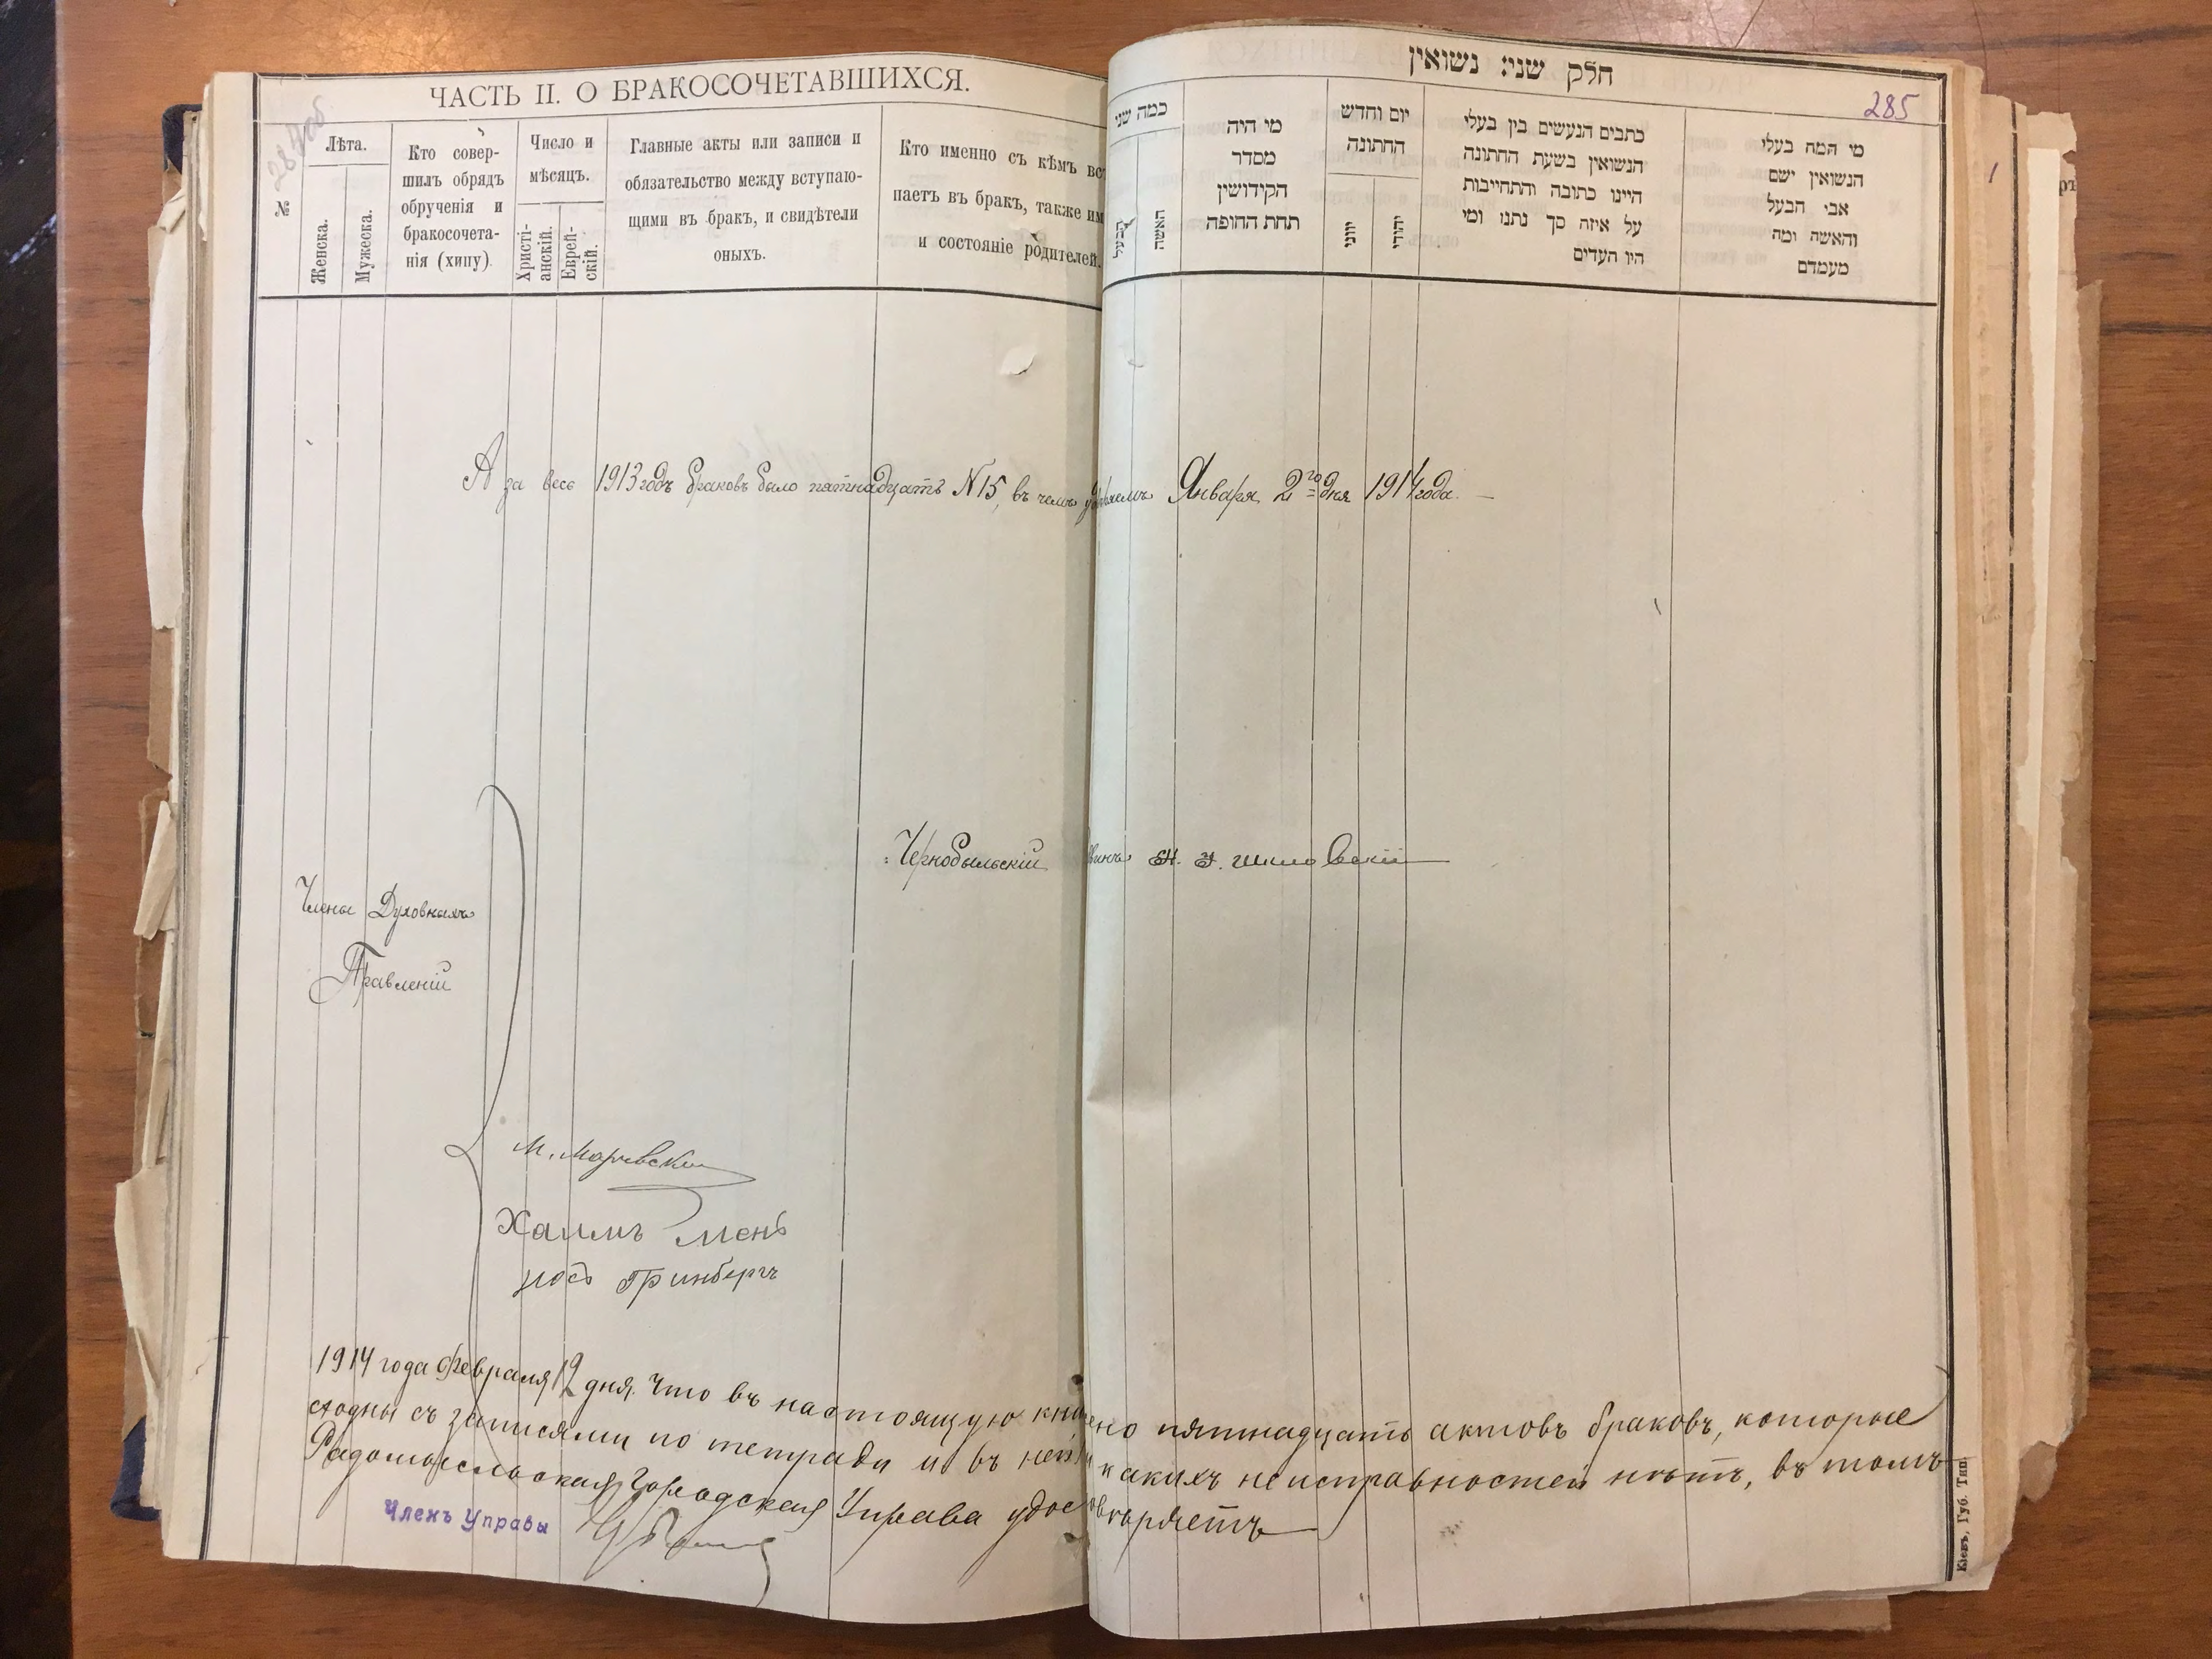 ЧАСТЬ II. О БРАКОСОЧЕТАВШИХСЯ.
№
Лѣта.
Женска.
Мужеска.
Кто совер-
шилъ обрядъ
обрученія и
бракосочета-
нія (хипу).
Число и
мѣсяцъ.
Христі-
анскій.
Еврей-
скій.
Главные акты или записи и
обязательство между вступаю-
щими въ бракъ, и свидѣтели
оныхъ.
Кто именно съ кѣмъ вст
паетъ въ бракъ, также им
и состояніе родителей.
חלק שני: נשואין
285
כמה שני
הבעל
האשה
מי היה
מסדר
הקידושין
תחת החופה
יום וחדש
החתונה
יווני
יהודי
כתבים הנעשים בין בעלי
הנשואין בשעת החתונה
היינו כתובה והתחייבות
על איזה סך נתנו ומי
היו העדים
מי המה בעלי
הנשואין ושם
אבי הבעל
והאשה ומה
מעמדם
А за весь 1913 годъ браковъ было пятнадцать N 15, въ чемъ Января 2го дня 1914 года.
Чернобыльскій
Члены Духовныхъ
Правленій
Хаимъ Мень
Гринбергъ
1914 года Февраля 12 дня. Что въ настоящую кни ено пятнадцать актовъ браковъ, которые
сходны съ записями по тетради и въ ней никакихъ неисправностей нѣтъ, въ томъ
Радомысльская Городская Управа удостовѣряетъ
Членъ Управы
Кіевъ, Губ. Тип.